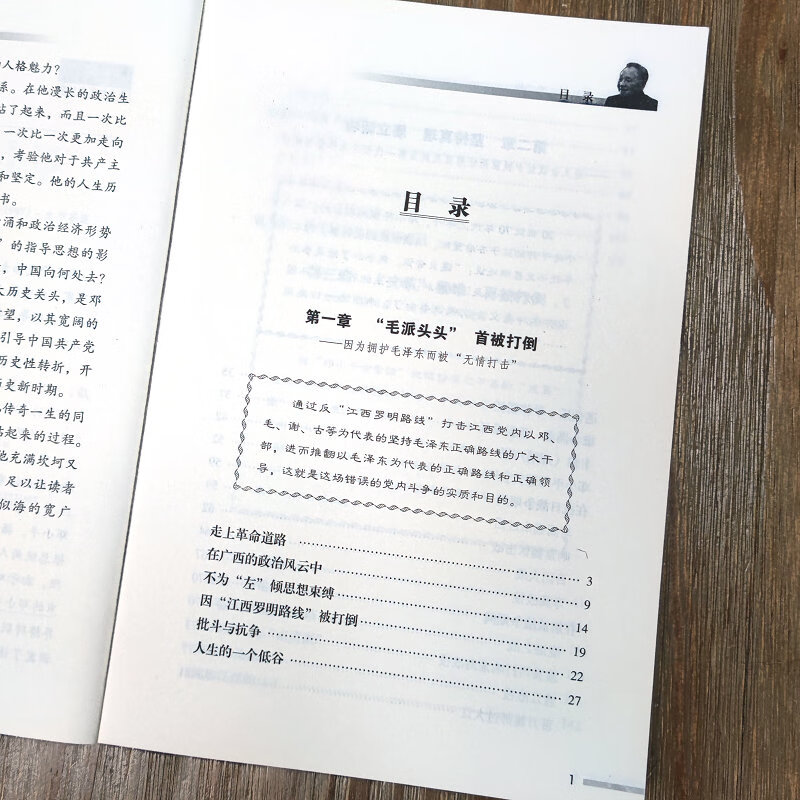 人格魅力?
系。在他漫长的政治生
站了起来，而且一次比
一次比一次更加走向
，考验他对于共产主
和坚定。他的人生历
书。
涌和政治经济形势
”的指导思想的影
，中国向何处去?
大历史关头，是邓
望，以其宽阔的
引导中国共产党
历史性转折，开
历史新时期。
传奇一生的同
站起来的过程。
他充满坎坷又
足以让读者
似海的宽广
目 录
目 录
第一章 “毛派头头” 首被打倒
——因为拥护毛泽东而被“无情打击”
通过反“江西罗明路线”打击江西党内以邓、
毛、谢、古等为代表的坚持毛泽东正确路线的广大干
部，进而推翻以毛泽东为代表的正确路线和正确领
导，这就是这场错误的党内斗争的实质和目的。
走上革命道路 3
在广西的政治风云中 9
不为“左”倾思想束缚 14
因“江西罗明路线”被打倒 19
批斗与抗争 22
人生的一个低谷 27
1